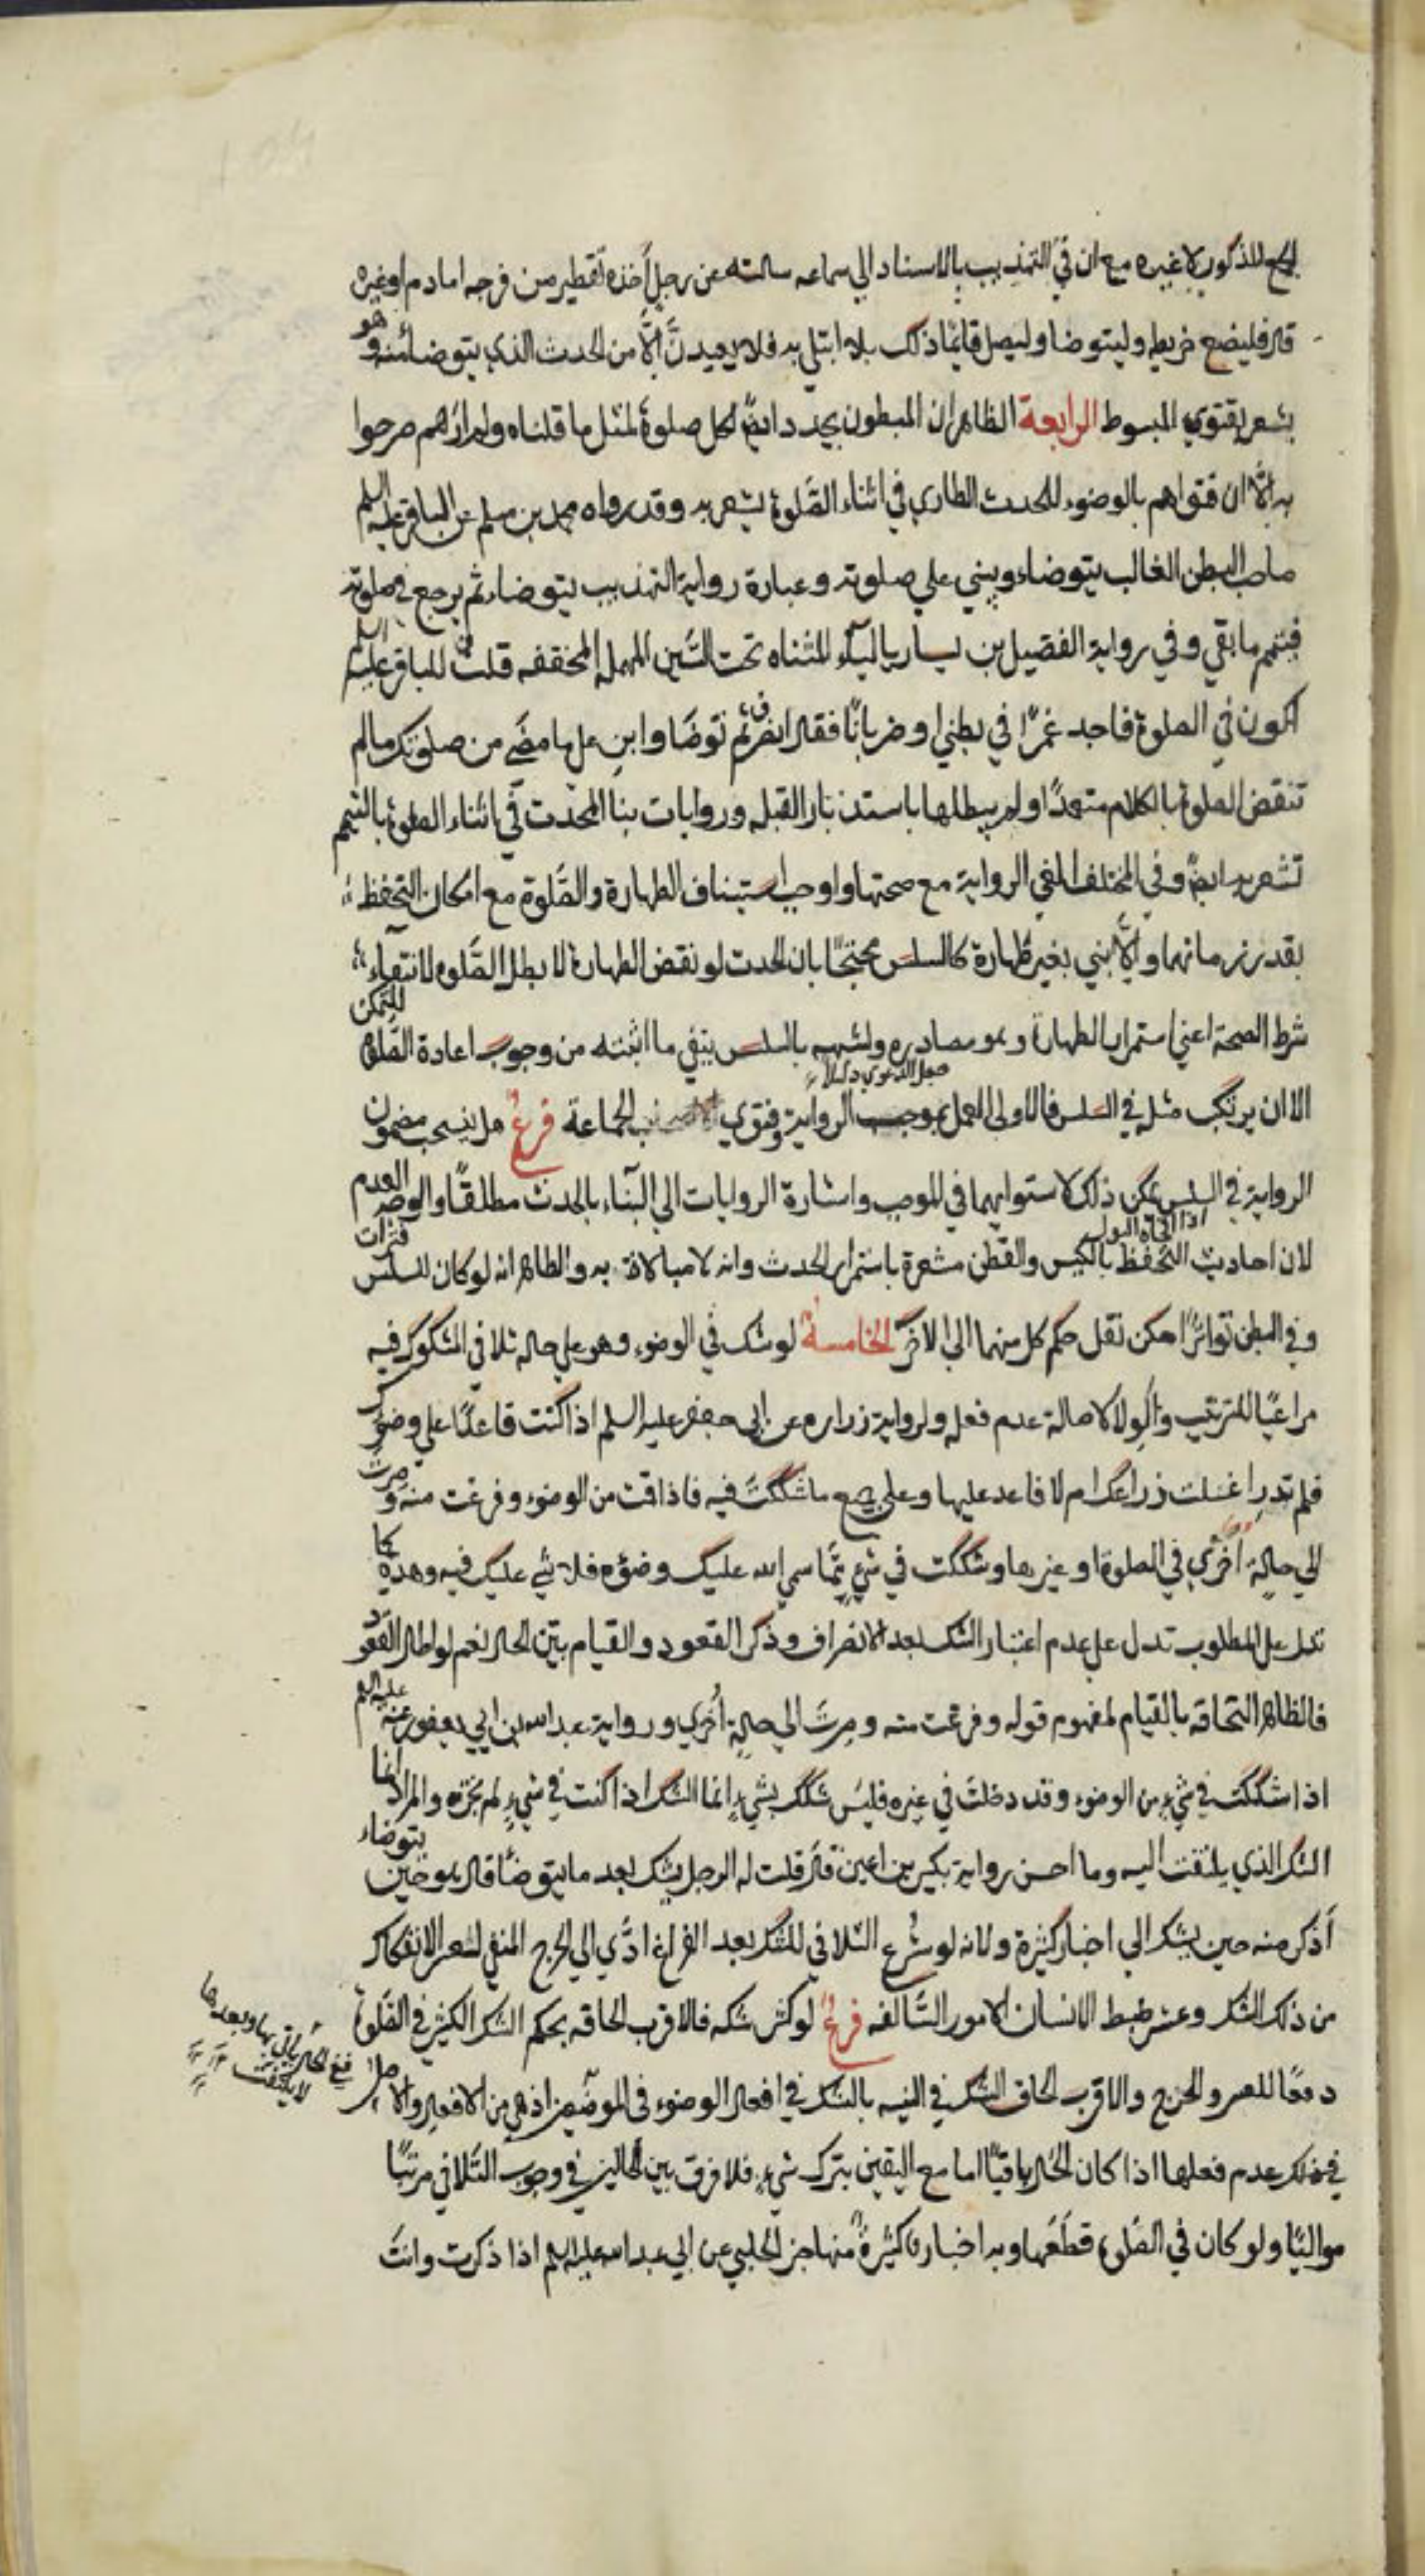 الجمع المذكور لا غيره مع ان في التهذيب بالاسناد الي سماعه سالته عن رجل أخذه تقطير من فرجه اما دم او غيره
قال فليضع خريطه وليتوضا وليصل فانما ذلك بلاء ابتلي به فلا يعيدنّ الّا من الحدث الذي يتوضا منه وهو
يشعر بفتوي المبسوط الرابعة الظاهر ان المبطون يجدد ايضًا لكل صلوة لمثل ما قلناه ولم ارهم صرحوا
به الّا ان فتواهم بالوضوء للحدث الطاري في اثناء الصَّلوة يشعر به وقد رواه محمد بن مسلم عن الباقر عليه السلم
صاحب البطن الغالب يتوضاء ويبني علي صلوته وعبارة رواية التهذيب يتوضاء ثم يرجع في صلوته
فيتمم ما بقي وفي رواية الفضيل بن يسار بالياء المثناه تحت السّين المهمله المخففه قلتُ للباقر عليه السلم
اكون في الصلوة فاجد غمزًا في بطني او ضربانًا فقال انصرف ثم توضّا وابنِ علي ما مضَي من صلوتك ما لم
تنقض الصلوة بالكلام متعمدًا ولم يبطلها باستدبار القبله وروايات بنا المحدث في اثناء الصلوة بالتيمم
تشعر به ايضًا وفي المختلف الغي الرواية مع صحتها واوجب استيناف الطهارة والصَّلوة مع امكان التحفظ
بقدر زمانهما والّا بني بغير طهارة كالسلس محتجًا بان الحدث لو نقض الطهارة لابطل الصَّلوة لانتفاء
شرط الصحة اعني استمرار الطهارة وهو مصادره وتشبيهه بالسلس ينفي ما اثبته من وجوب اعادة الصَّلوة للتمكن
جعل الدعوي دليلا
الا ان يرتكب مثله في السلس فالاولى العمل بموجب الرواية وفتوي الجماعة فرعٌ هل ينسحب مضمون
الرواية في السلس يمكن ذلك لاستوايهما في الموجب واشارة الروايات الي البناء بالحدث مطلقًا والوجه العدم
اذا فجاه البول
لان احاديث التحفظ بالكيس والقطن مشعرة باستمرار الحدث وانه لا مبالاة به والظاهر انه لو كان للسلس فترات
وفي البطن تواترًا امكن نقل حكم كل منهما الي الاخر الخامسة لو شك في الوضوء وهو علي حاله تلافي المشكوك فيه
مراعيًا للترتيب والولا لاصالة عدم فعله ولرواية زراره عن ابي جعفر عليه السلم اذا كنت قاعدًا علي وضوئك
فلم تدرِ اغسلت ذراعك ام لا فاعد عليها وعلي جميع ما شككتَ فيه فاذا قمت من الوضوء وفرغت منه وصرت
الي حالة أخرَي في الصلوة او غيرها وشككت في شيءٍ ممّا سمي الله عليك وضؤه فلا شي عليك فيه وهذه كما
تدل علي المطلوب تدل علي عدم اعتبار الشك بعد الانصراف وذكر القعود والقيام يبيّن الحال نعم لو اطال القعود
فالظاهر التحاقه بالقيام لمفهوم قوله وفرغت منه وصرتَ الي حالةٍ أُخرَي ورواية عبد الله بن ابي يعفور عنه عليه السلم
اذا شككت في شيءٍ من الوضوء وقد دخلتَ في غيره فليسَ شكّك بشيءٍ انما الشك اذا كنت في شيءٍ لم تجزه والمراد انما
الشك الذي يلتفت اليه وما احسن رواية بكير بن اعين قال قلت له الرجل يشك بعد ما يتوضّأ قال هو حين يتوضاء
أذكر منه حين يشك الي اخبار كثيرة ولانه لو شُرع التلافي للشك بعد الفراغ ادَّي الي الحرج المنفي لتعسر الانفكاك
من ذلك الشك وعسر ضبط الانسان الامور السَّالفه فرعٌ لو كثر شكه فالاقرب الحاقه بحكم الشك الكثير في الصَّلوة
دفعًا للعسر والحرج والاقرب الحاق الشك في النيه بالشك في افعال الوضوء في الموضعين اذ هي من الافعال والاصل
ففي الحال ياتي بها وبعدها
لا يلتفت
في ذلك عدم فعلها اذا كان الحال باقيًا اما مع اليقين بترك شيءٍ فلا فرق بين الحالين في وجوب التَّلافي مرتبًا
مواليًا ولو كان في الصَّلوة قطعَها وبه اخبار كثيرةٌ منها خبر الحلبي عن ابي عبد الله عليه السلم اذا ذكرت وانتَ